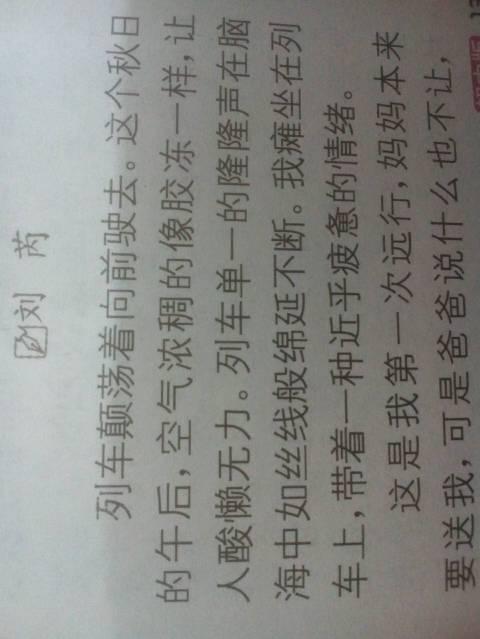 刘 芮
列车颠荡着向前驶去。这个秋日
的午后，空气浓稠的像胶冻一样，让
人酸懒无力。列车单一的隆隆声在脑
海中如丝线般绵延不断。我瘫坐在列
车上，带着一种近乎疲惫的情绪。
这是我第一次远行，妈妈本来
要送我，可是爸爸说什么也不让，